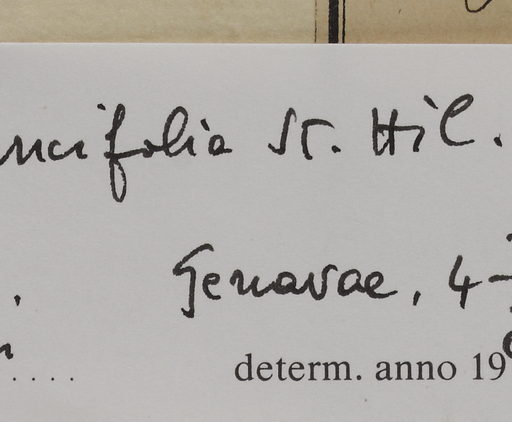 uncifolia St. Hil.
Genavae, 4-
determ. anno 19